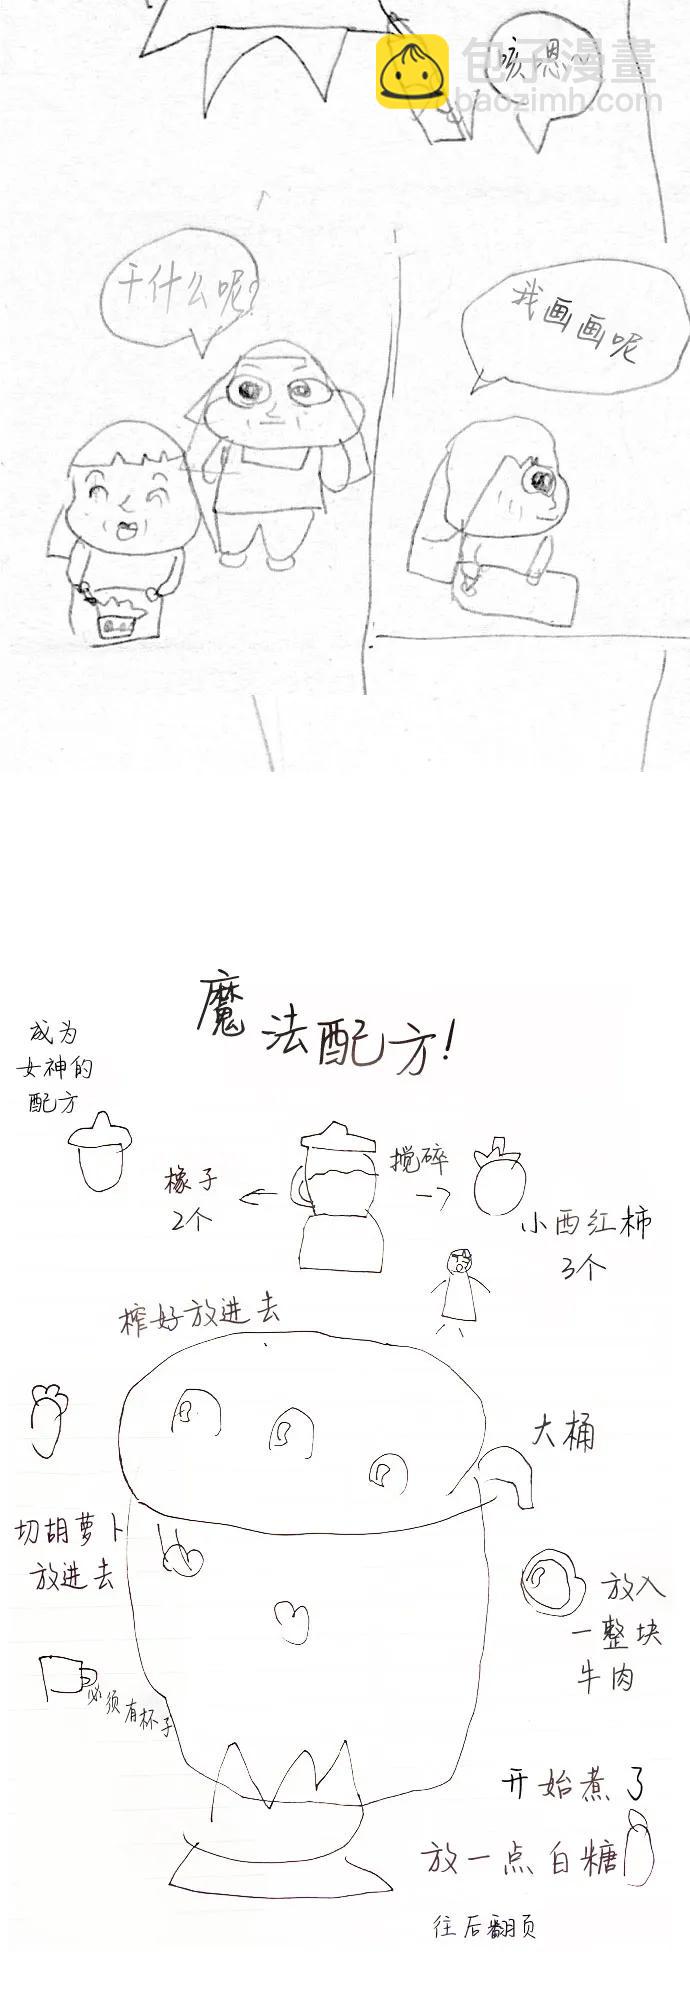 包子漫畫
baozimh.com
咳恩
干什么呢?
我画画呢
魔法配方!
成为
女神的
配方
橡子
2个
搅碎
小西红柿
3个
榨好放进去
大桶
切胡萝卜
放进去
放入
一整块
牛肉
必须有杯子
开始煮了
放一点白糖
往后翻页